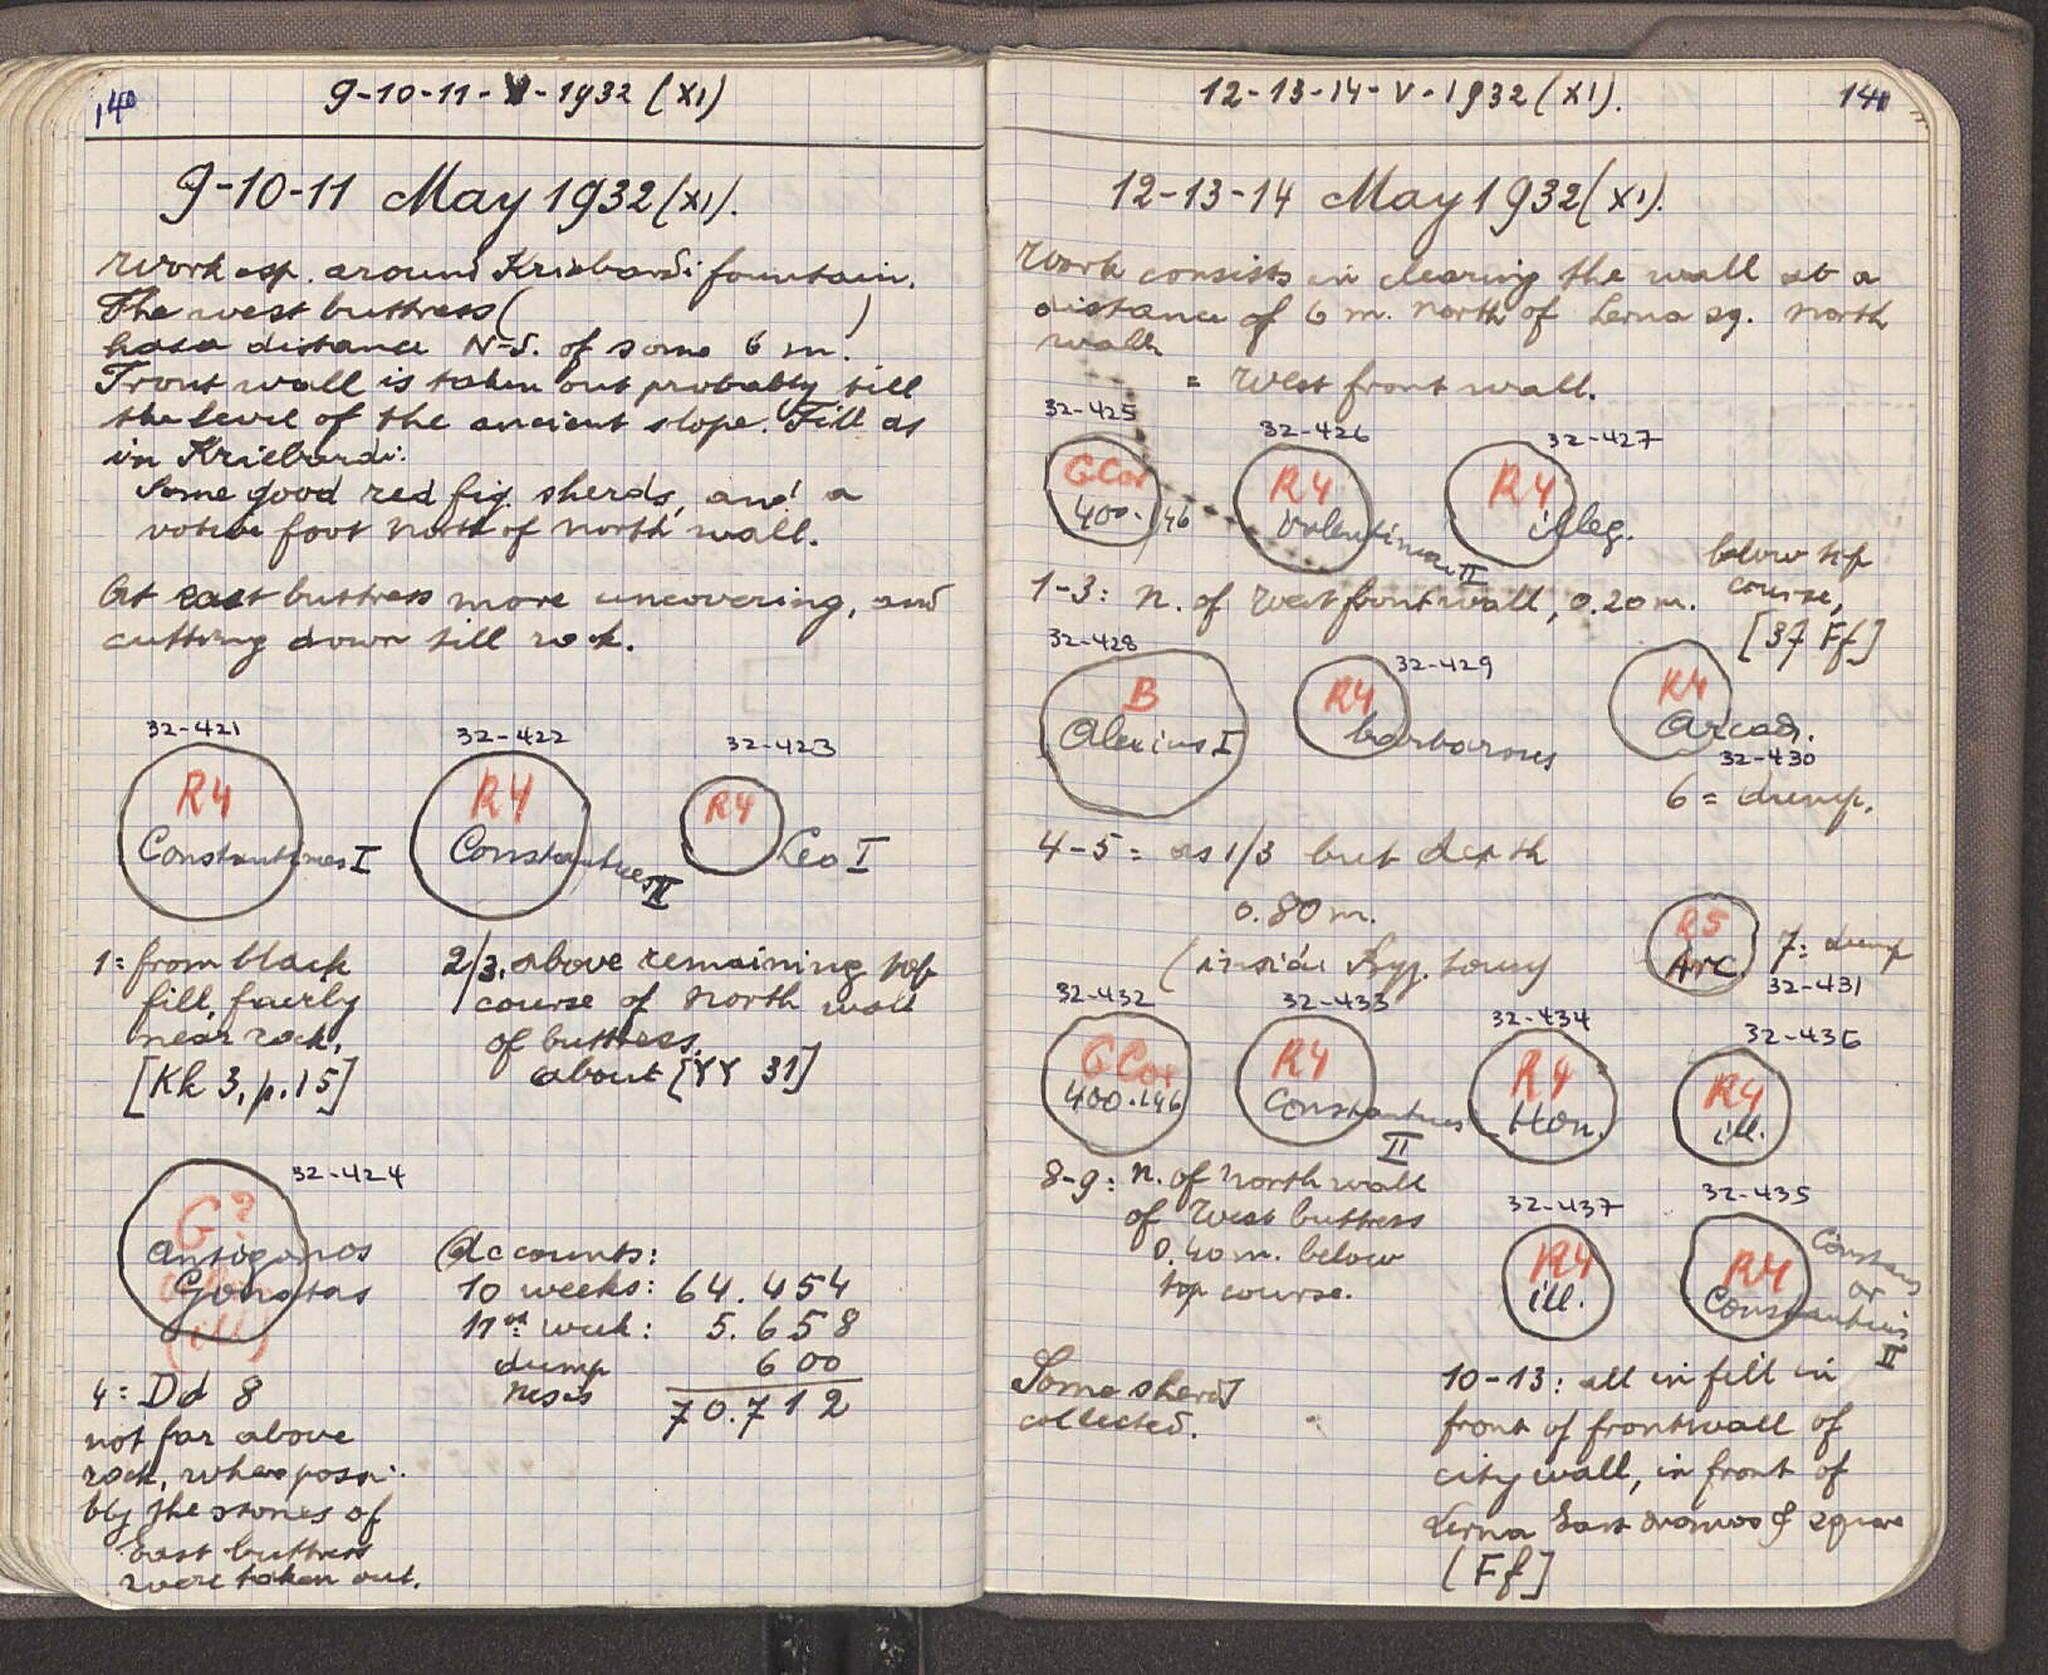 140
9-10-11-V-1932 (XI)
9-10-11 May 1932 (XI).
Work esp. around Kriebardi fountain.
The west buttress (                    )
has a distance N-S. of some 6 m.
Front wall is taken out probably till
the level of the ancient slope. Fill as
in Kriebardi.
Some good red fig. sherds, and a
votive foot north of north wall.
At east buttress more uncovering, and
cutting down till rock.
32-421 32-422 32-423
R4 R4 R4
Constantines I Constantius II Leo I
1: from black
fill, fairly
near rock,
[Kk 3, p. 15]
2/3. above remaining top
course of north wall
of buttress.
about [YY 31]
32-424
G?
Antigonos
Gonatas
(ill)
4: Dd 8
not far above
rock, where possi-
bly the stones of
East buttress
were taken out.
Accounts:
10 weeks: 64.454
11th week: 5.658
dump 600
Nesis
70.712
12-13-14-V-1932 (XI).
141
12-13-14 May 1932 (XI).
Work consists in clearing the wall at a
distance of 6 m. north of Lerna sq. north
wall
= West front wall.
32-425 32-426 32-427
GCor R4 R4
400-146 Valentinian II illeg.
1-3: n. of West front wall, 0.20 m. below top
course,
[37 Ff]
32-428 32-429
B R4 R4
Alexius I barbarous Arcad.
32-430
6 = dump.
4-5 = as 1/3 but depth
0.80 m.
(inside Byz. tower)
R5
Arc. 7: dump
32-431
32-432 32-433 32-434 32-436
GCor R4 R4 R4
400-146 Constantius II Hon. ill.
8-9: n. of north wall
of West buttress
0.40 m. below
top course.
32-437 32-435
R4 R4
ill. Constantius II
Constans
or
Some sherds
collected.
10-13: all in fill in
front of frontwall of
city wall, in front of
Lerna East dromos & square
[Ff]